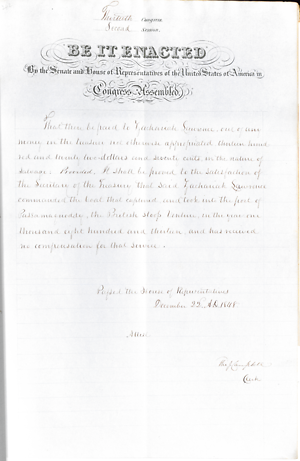 Thirtieth Congress
Second Session
BE IT ENACTED
By the Senate and House of Representatives of the United States of America in
Congress Assembled
That there be paid to Zachariah, out of any
money in the treasury not otherwise appropriated, hundred
and twenty two dollars and twenty cents, in the nature of
Provided, It shall be proved to the satisfaction
of the Secretary of the Treasury that said Zachariah
commanded the boat that captured and took into the port of
Passamaquoddy, the British sloop, in the year one
thousand eight hundred and, and has received
no compensation for that service.
Passed the House of Representatives
December 23. A.D. 1848.
Attest
Clerk